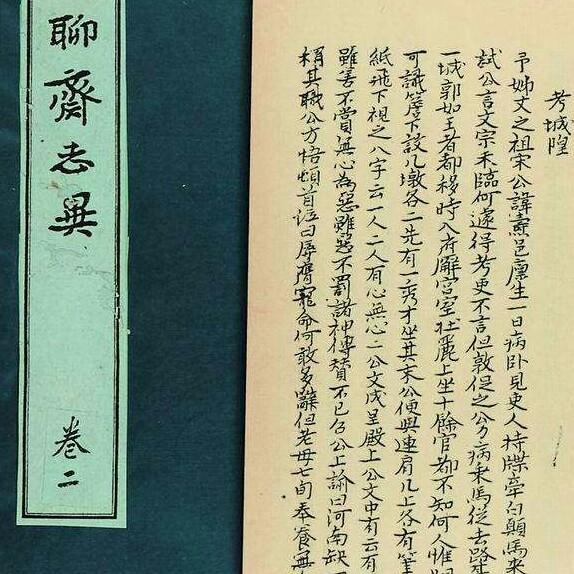 考城隍
予姊丈之祖宋公諱燾邑廩生一日病卧見吏人持牒牽白顛馬來
試公言文宗未臨何遽得考吏不言但敦促之公力病乘馬從去路
一城郭如王者都移時入府廨宮室壯麗上坐十餘官都不知何人惟
可識簷下設几墩各二先有一秀才坐其末公便與連肩几上各有筆
紙飛下視之八字云一人二人有心無心二公文成呈殿上公文中有云有
雖善不賞無心為惡雖惡不罰諸神傳贊不已召公上諭曰河南缺
稱其職公方悟頓首泣曰辱膺寵命何敢多辭但老母七旬奉養無
聊齋志異
卷二